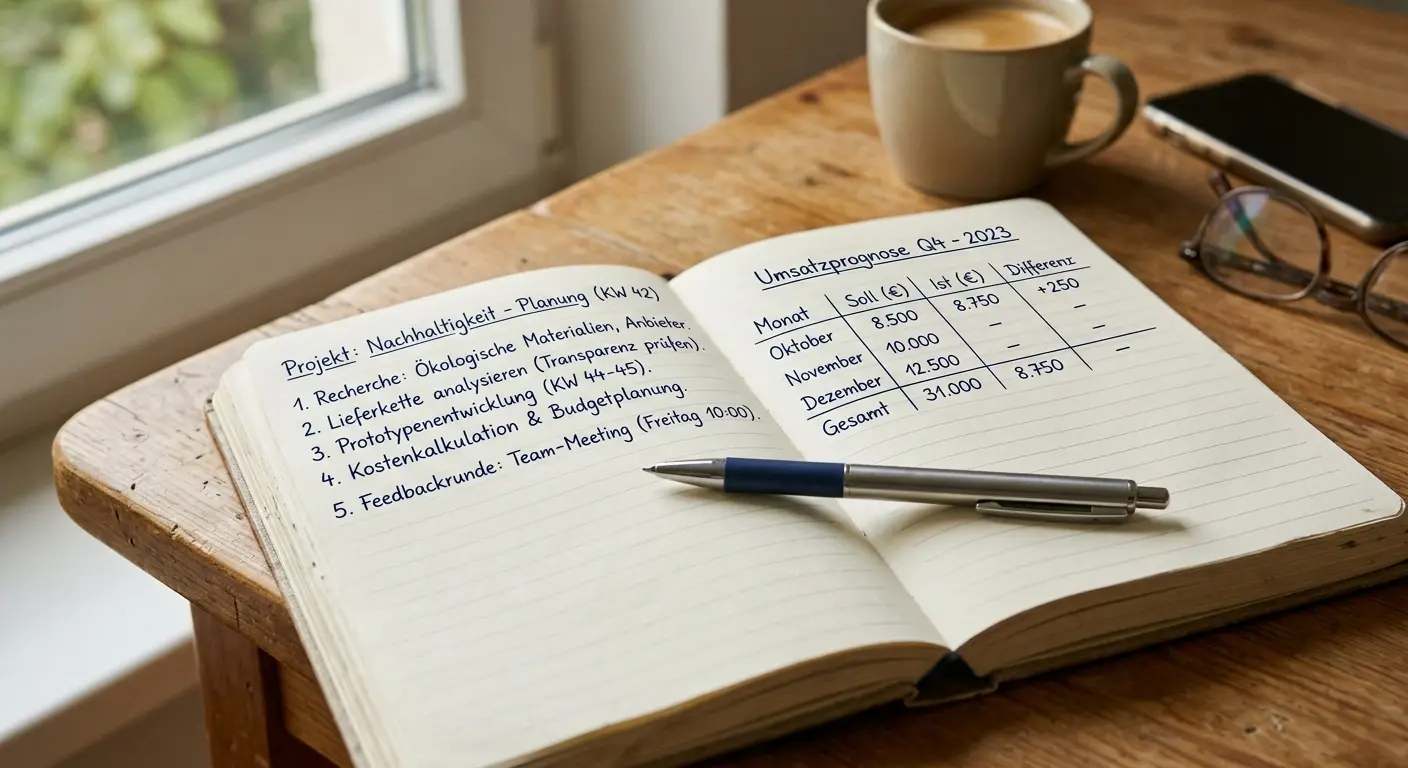 Projekt: Nachhaltigkeit - Planung (KW 42)
1. Recherche: Ökologische Materialien, Anbieter.
2. Lieferkette analysieren (Transparenz prüfen).
3. Prototypenentwicklung (KW 44-45).
4. Kostenkalkulation & Budgetplanung.
5. Feedbackrunde: Team-Meeting (Freitag 10:00).
Umsatzprognose Q4 - 2023
Monat Soll (€) Ist (€) Differenz
Oktober 8.500 8.750 +250
November 10.000 – –
Dezember 12.500 – –
Gesamt 31.000 8.750 –